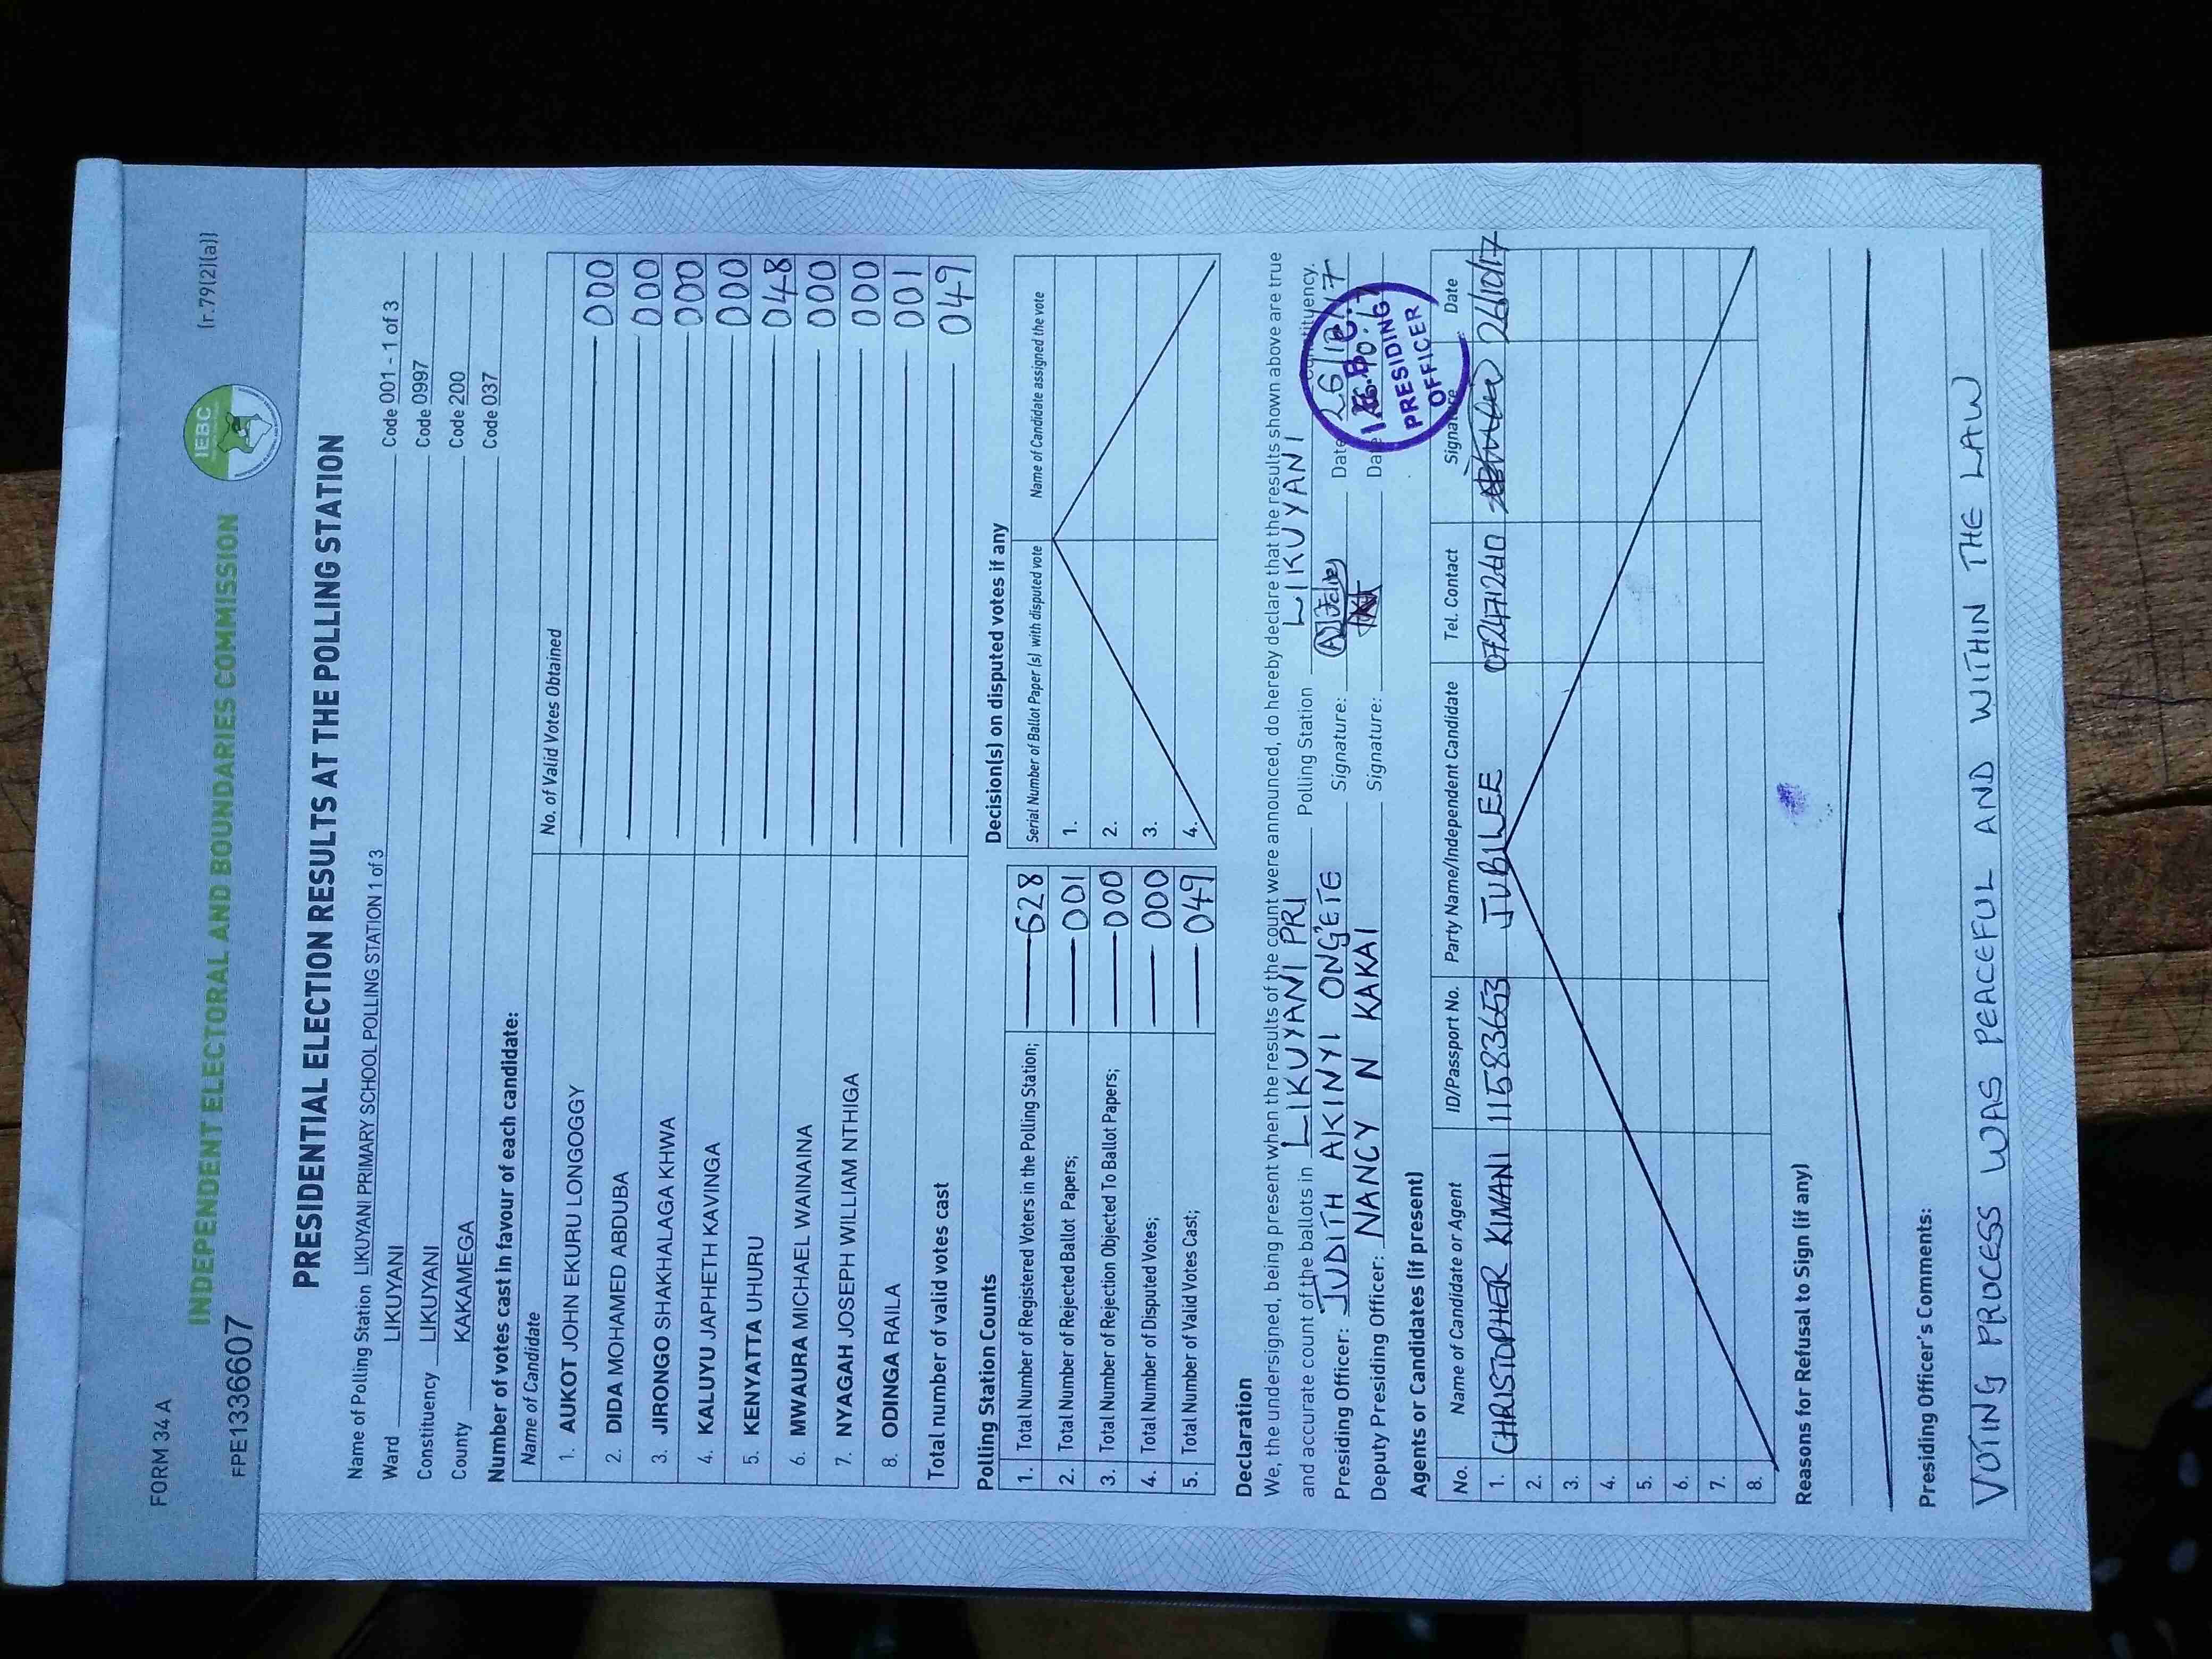 FORM 34 A
[r.79(2)(a)]
IEBC
INDEPENDENT ELECTORAL AND BOUNDARIES COMMISSION
FPE1336607
PRESIDENTIAL ELECTION RESULTS AT THE POLLING STATION
Name of Polling Station LIKUYANI PRIMARY SCHOOL POLLING STATION 1 of 3 Code 001 - 1 of 3
Ward LIKUYANI Code 0997
Constituency LIKUYANI Code 200
County KAKAMEGA Code 037
Number of votes cast in favour of each candidate:
Name of Candidate No. of Valid Votes Obtained
1. AUKOT JOHN EKURU LONGOGGY 000
2. DIDA MOHAMED ABDUBA 000
3. JIRONGO SHAKHALAGA KHWA 000
4. KALUYU JAPHETH KAVINGA 000
5. KENYATTA UHURU 048
6. MWAURA MICHAEL WAINAINA 000
7. NYAGAH JOSEPH WILLIAM NTHIGA 000
8. ODINGA RAILA 001
Total number of valid votes cast 049
Polling Station Counts
1. Total Number of Registered Voters in the Polling Station; 628
2. Total Number of Rejected Ballot Papers; 001
3. Total Number of Rejection Objected To Ballot Papers; 000
4. Total Number of Disputed Votes; 000
5. Total Number of Valid Votes Cast; 049
Decision(s) on disputed votes if any
Serial Number of Ballot Paper (s) with disputed vote Name of Candidate assigned the vote
1.
2.
3.
4.
Declaration
We, the undersigned, being present when the results of the count were announced, do hereby declare that the results shown above are true
and accurate count of the ballots in LIKUYANI PRI Polling Station LIKUYANI Constituency.
Presiding Officer: JUDITH AKINYI ONG'ETE Signature: Date 26/10/17
Deputy Presiding Officer: NANCY N KAKAI Signature: Date
I.E.B.C.
PRESIDING
OFFICER
Agents or Candidates (if present)
No. Name of Candidate or Agent ID/Passport No. Party Name/Independent Candidate Tel. Contact Signature Date
1. CHRISTOPHER KIMANI 11583653 JUBILEE 26/10/17
2.
3.
4.
5.
6.
7.
8.
Reasons for Refusal to Sign (if any)
Presiding Officer's Comments:
VOTING PROCESS WAS PEACEFUL AND WITHIN THE LAW